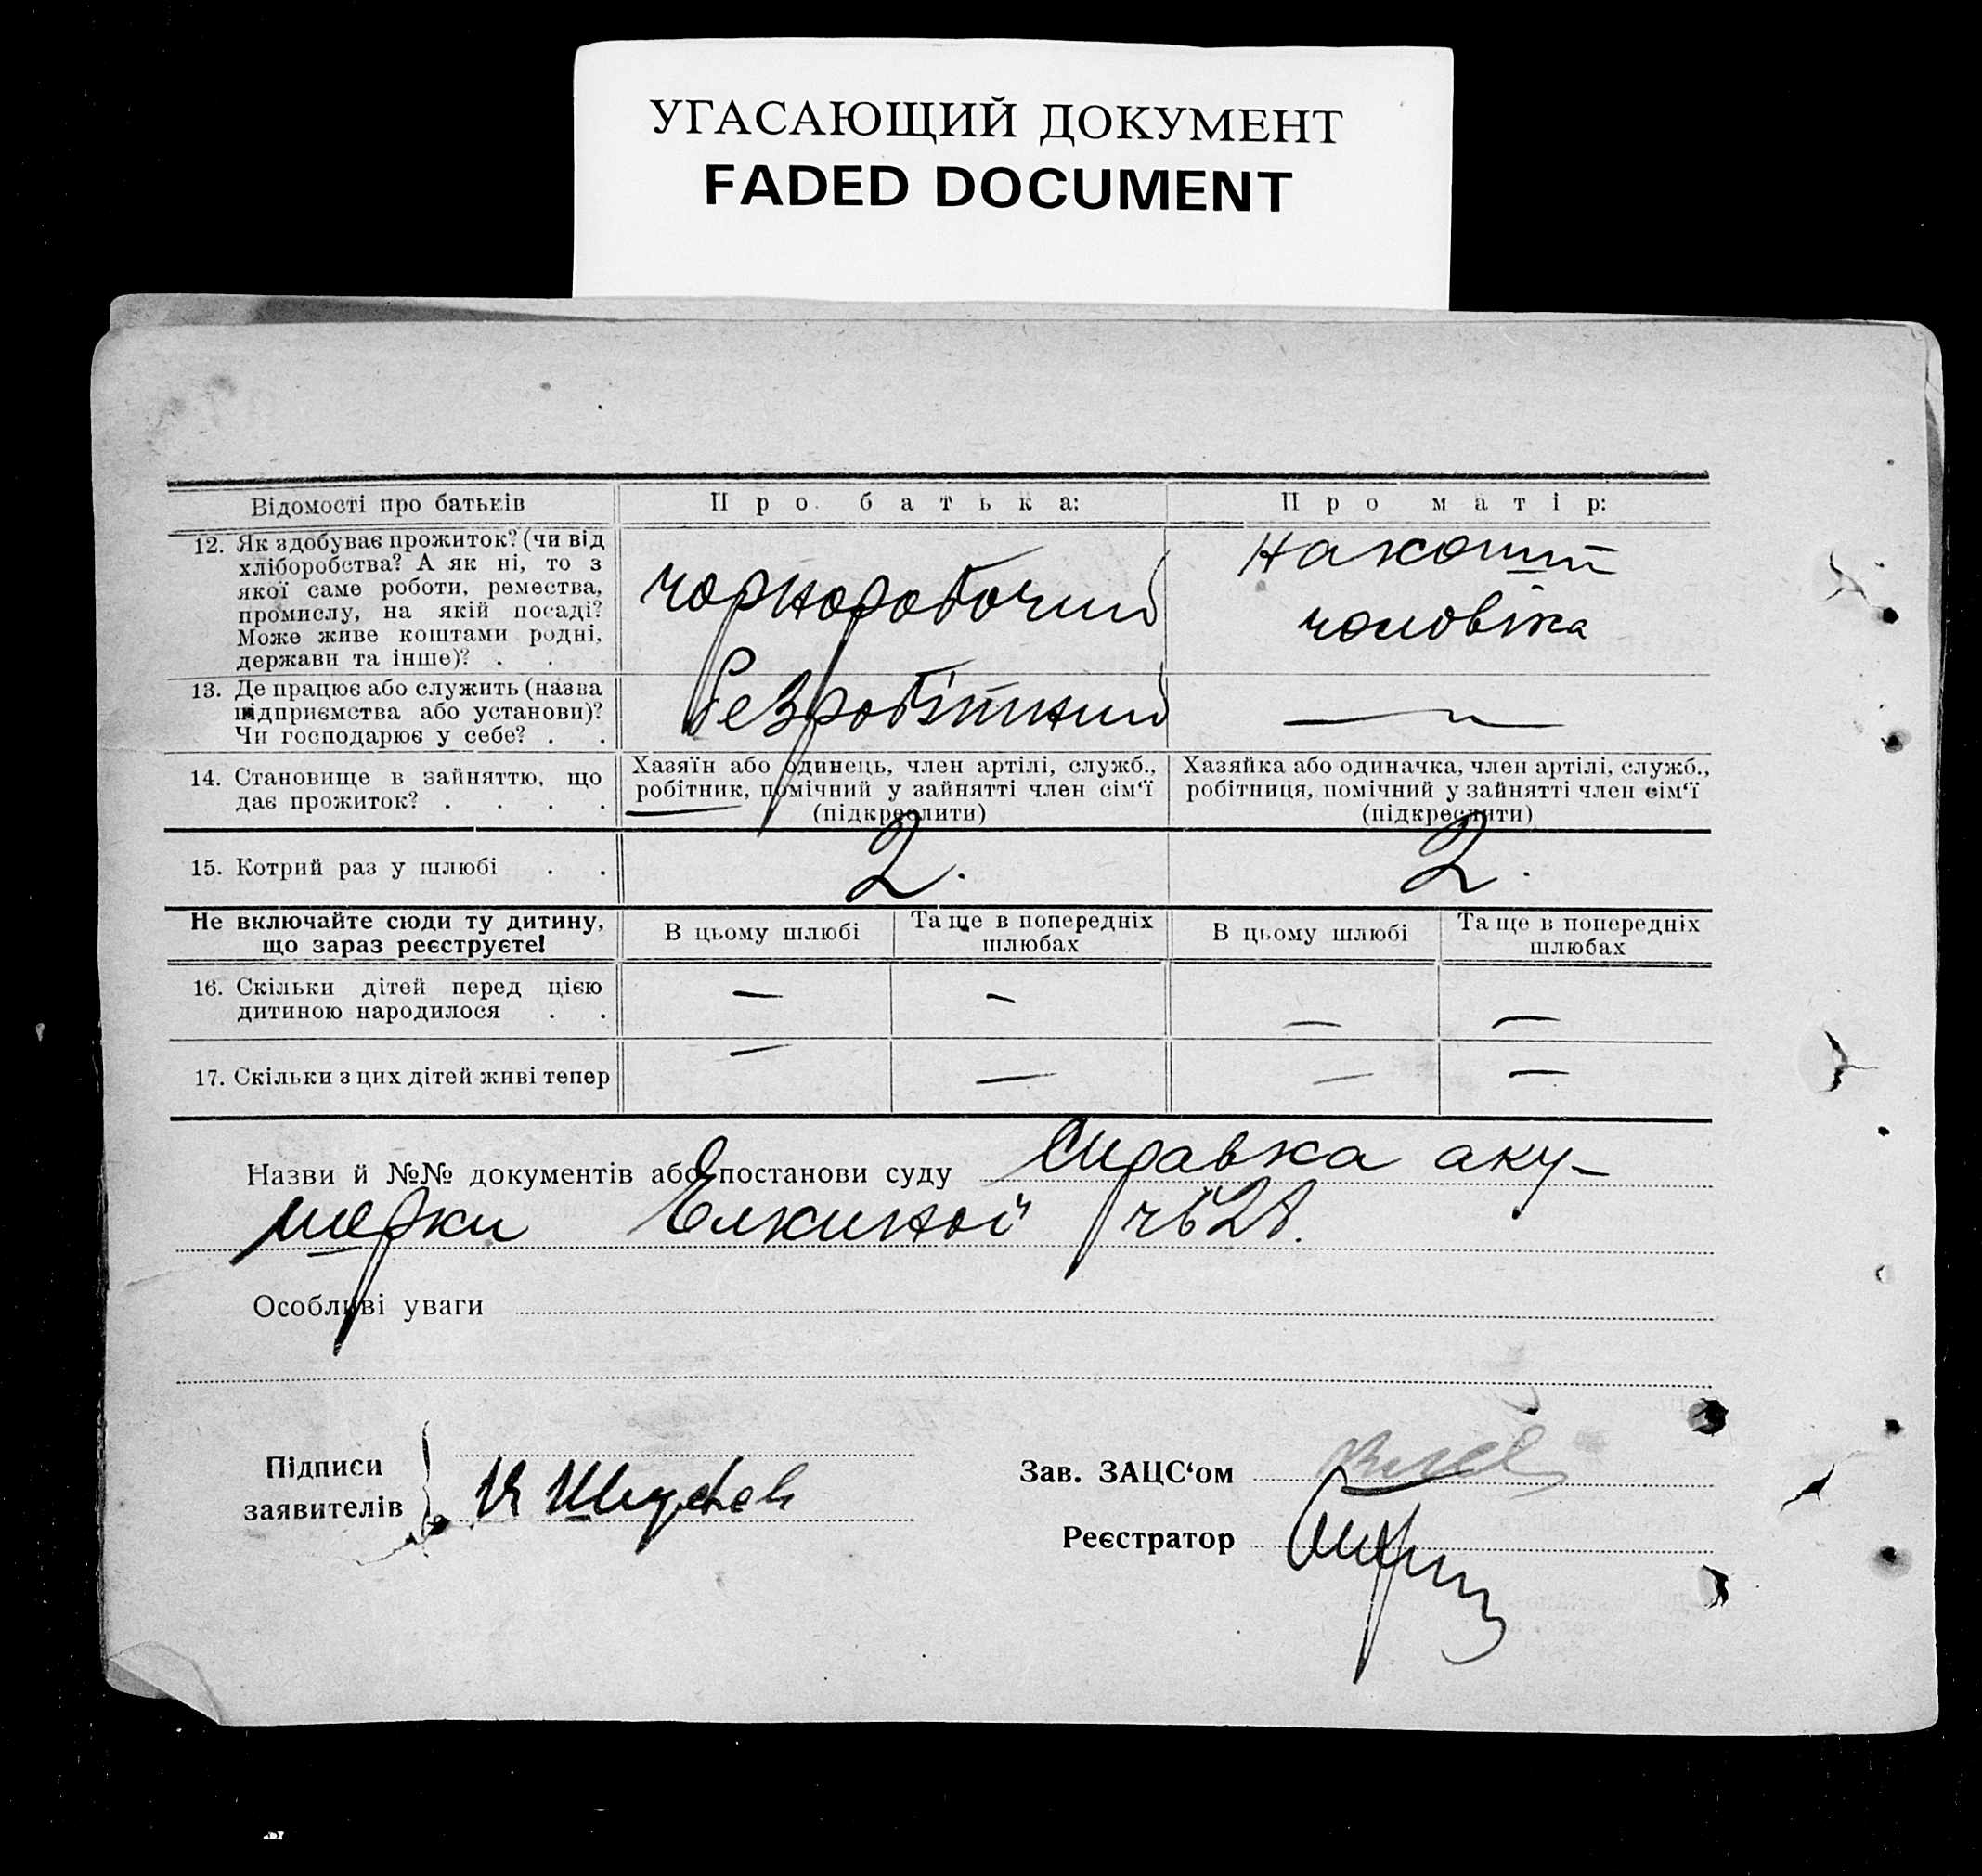 УГАСАЮЩИЙ ДОКУМЕНТ
FADED DOCUMENT
Відомості про батьків
Про батька:
Про матір:
12. Як здобуває прожиток? (чи від
хліборобства? А як ні, то з
якої саме роботи, ремества,
промислу, на якій посаді?
Може живе коштами родні,
держави та інше)? . .
чорноробочий
на кошти
чоловіка
13. Де працює або служить (назва
підприємства або установи)?
Чи господарює у себе? . .
безробітний
—
14. Становище в зайняттю, що
дає прожиток? . . . .
Хазяїн або одинець, член артілі, служб.,
робітник, помічний у зайнятті член сім‘ї
(підкреслити)
Хазяйка або одиначка, член артілі, служб.,
робітниця, помічний у зайнятті член сім‘ї
(підкреслити)
15. Котрий раз у шлюбі . .
2.
2.
Не включайте сюди ту дитину,
що зараз реєструєте!
В цьому шлюбі
Та ще в попередніх
шлюбах
В цьому шлюбі
Та ще в попередніх
шлюбах
16. Скільки дітей перед цією
дитиною народилося . .
— — — —
17. Скільки з цих дітей живі тепер
— — — —
Назви й №№ документів або постанови суду Справка аку-
шерки Елкиной
Особливі уваги
Підписи
заявителів
Зав. ЗАЦС‘ом
Реєстратор